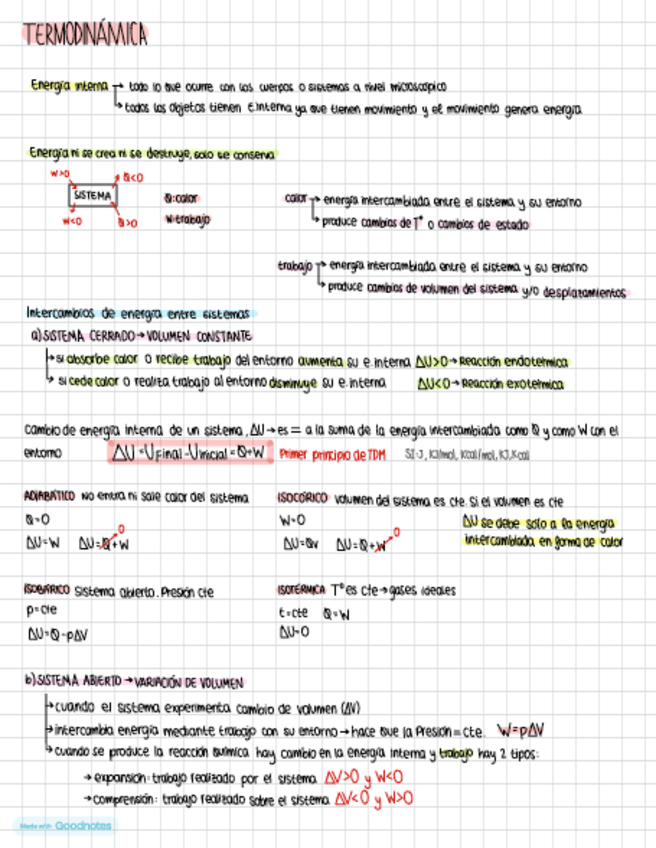 TERMODINÁMICA
Energía interna → todo lo que ocurre con los cuerpos o sistemas a nivel microscópico
↳ todos los objetos tienen E.interna ya que tienen movimiento y el movimiento genera energía
Energía ni se crea ni se destruye, solo se conserva
W>0 Q<0
SISTEMA
W<0 Q>0
Q:calor
W:trabajo
calor → energía intercambiada entre el sistema y su entorno
↳ produce cambios de Tª o cambios de estado
trabajo → energía intercambiada entre el sistema y su entorno
↳ produce cambios de volumen del sistema y/o desplazamientos
Intercambios de energía entre sistemas
a) SISTEMA CERRADO → VOLUMEN CONSTANTE
→ si absorbe calor o recibe trabajo del entorno aumenta su e.interna ΔU>0 → Reacción endotérmica
→ si cede calor o realiza trabajo al entorno disminuye su e.interna ΔU<0 → Reacción exotérmica
Cambio de energía interna de un sistema, ΔU → es = a la suma de la energía intercambiada como Q y como W con el
entorno ΔU = Ufinal - Uinicial = Q+W Primer principio de TDM SI:J, KJ/mol, Kcal/mol, KJ, Kcal
ADIABÁTICO No entra ni sale calor del sistema
Q=0
ΔU=W ΔU=Q+W 0
ISOCÓRICO volumen del sistema es cte. Si el volumen es cte
W=0
ΔU=Qv ΔU=Q+W 0
ΔU se debe solo a la energía
intercambiada en forma de calor
ISOBÁRICO Sistema abierto. Presión cte
p=cte
ΔU=Q-pΔV
ISOTÉRMICA Tª es cte → gases ideales
t=cte Q=W
ΔU=0
b) SISTEMA ABIERTO → VARIACIÓN DE VOLUMEN
→ cuando el sistema experimenta cambio de volumen (ΔV)
→ intercambia energía mediante trabajo con su entorno → hace que la Presión=cte. W=pΔV
→ cuando se produce la reacción química hay cambio en la energía interna y trabajo hay 2 tipos:
→ expansión: trabajo realizado por el sistema ΔV>0 y W<0
→ comprensión: trabajo realizado sobre el sistema ΔV<0 y W>0
Made with Goodnotes